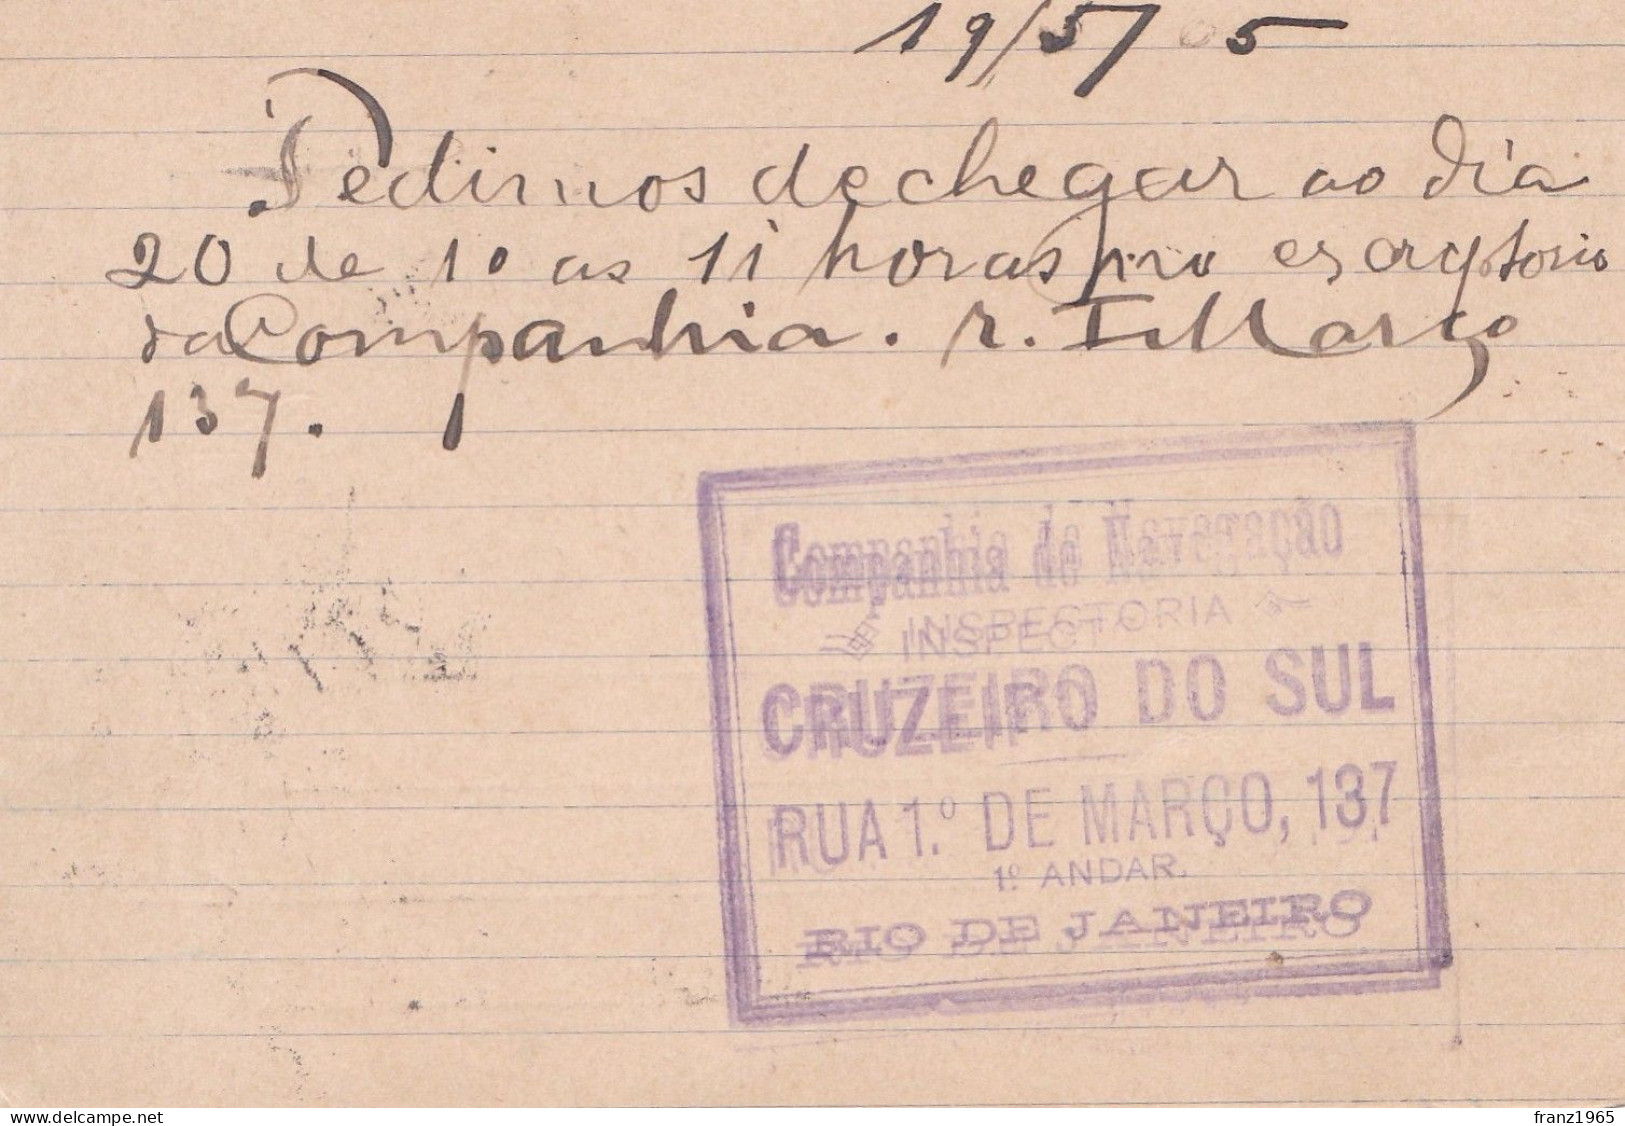 19/5/05
Pedimos de chegar ao dia
20 de 10 as 11 horas no escryptorio
da Companhia. r. I Março
137.
Companhia de Navegação
INSPECTORIA
CRUZEIRO DO SUL
RUA 1.º DE MARÇO, 137
1º ANDAR.
RIO DE JANEIRO
delcampe.net
franz1965